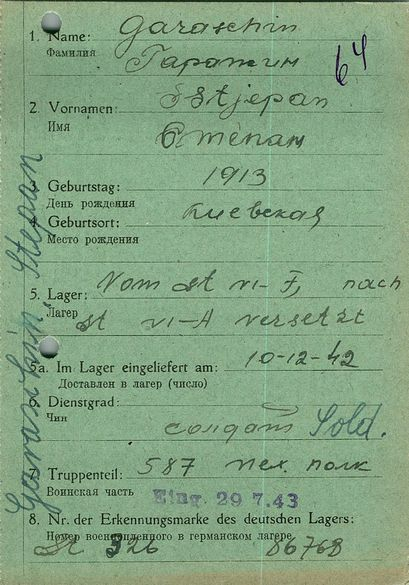 1. Name: Garaschin
Фамилия
Гарашин
64
2. Vornamen: Sstjepan
Имя
Степан
3. Geburtstag: 1913
День рождения
4. Geburtsort: Киевская
Место рождения
5. Lager: Vom St VI-F, nach
Лагер St VI-A versetzt
5a. Im Lager eingeliefert am: 10-12-42
Доставлен в лагер (число)
6. Dienstgrad:
Чин солдат Sold.
7. Truppenteil: 587 пех. полк
Воинская часть Eing. 29 7.43
8. Nr. der Erkennungsmarke des deutschen Lagers:
Номер военнопленного в германском лагере
St 326 86768
Garaschin, Stepan